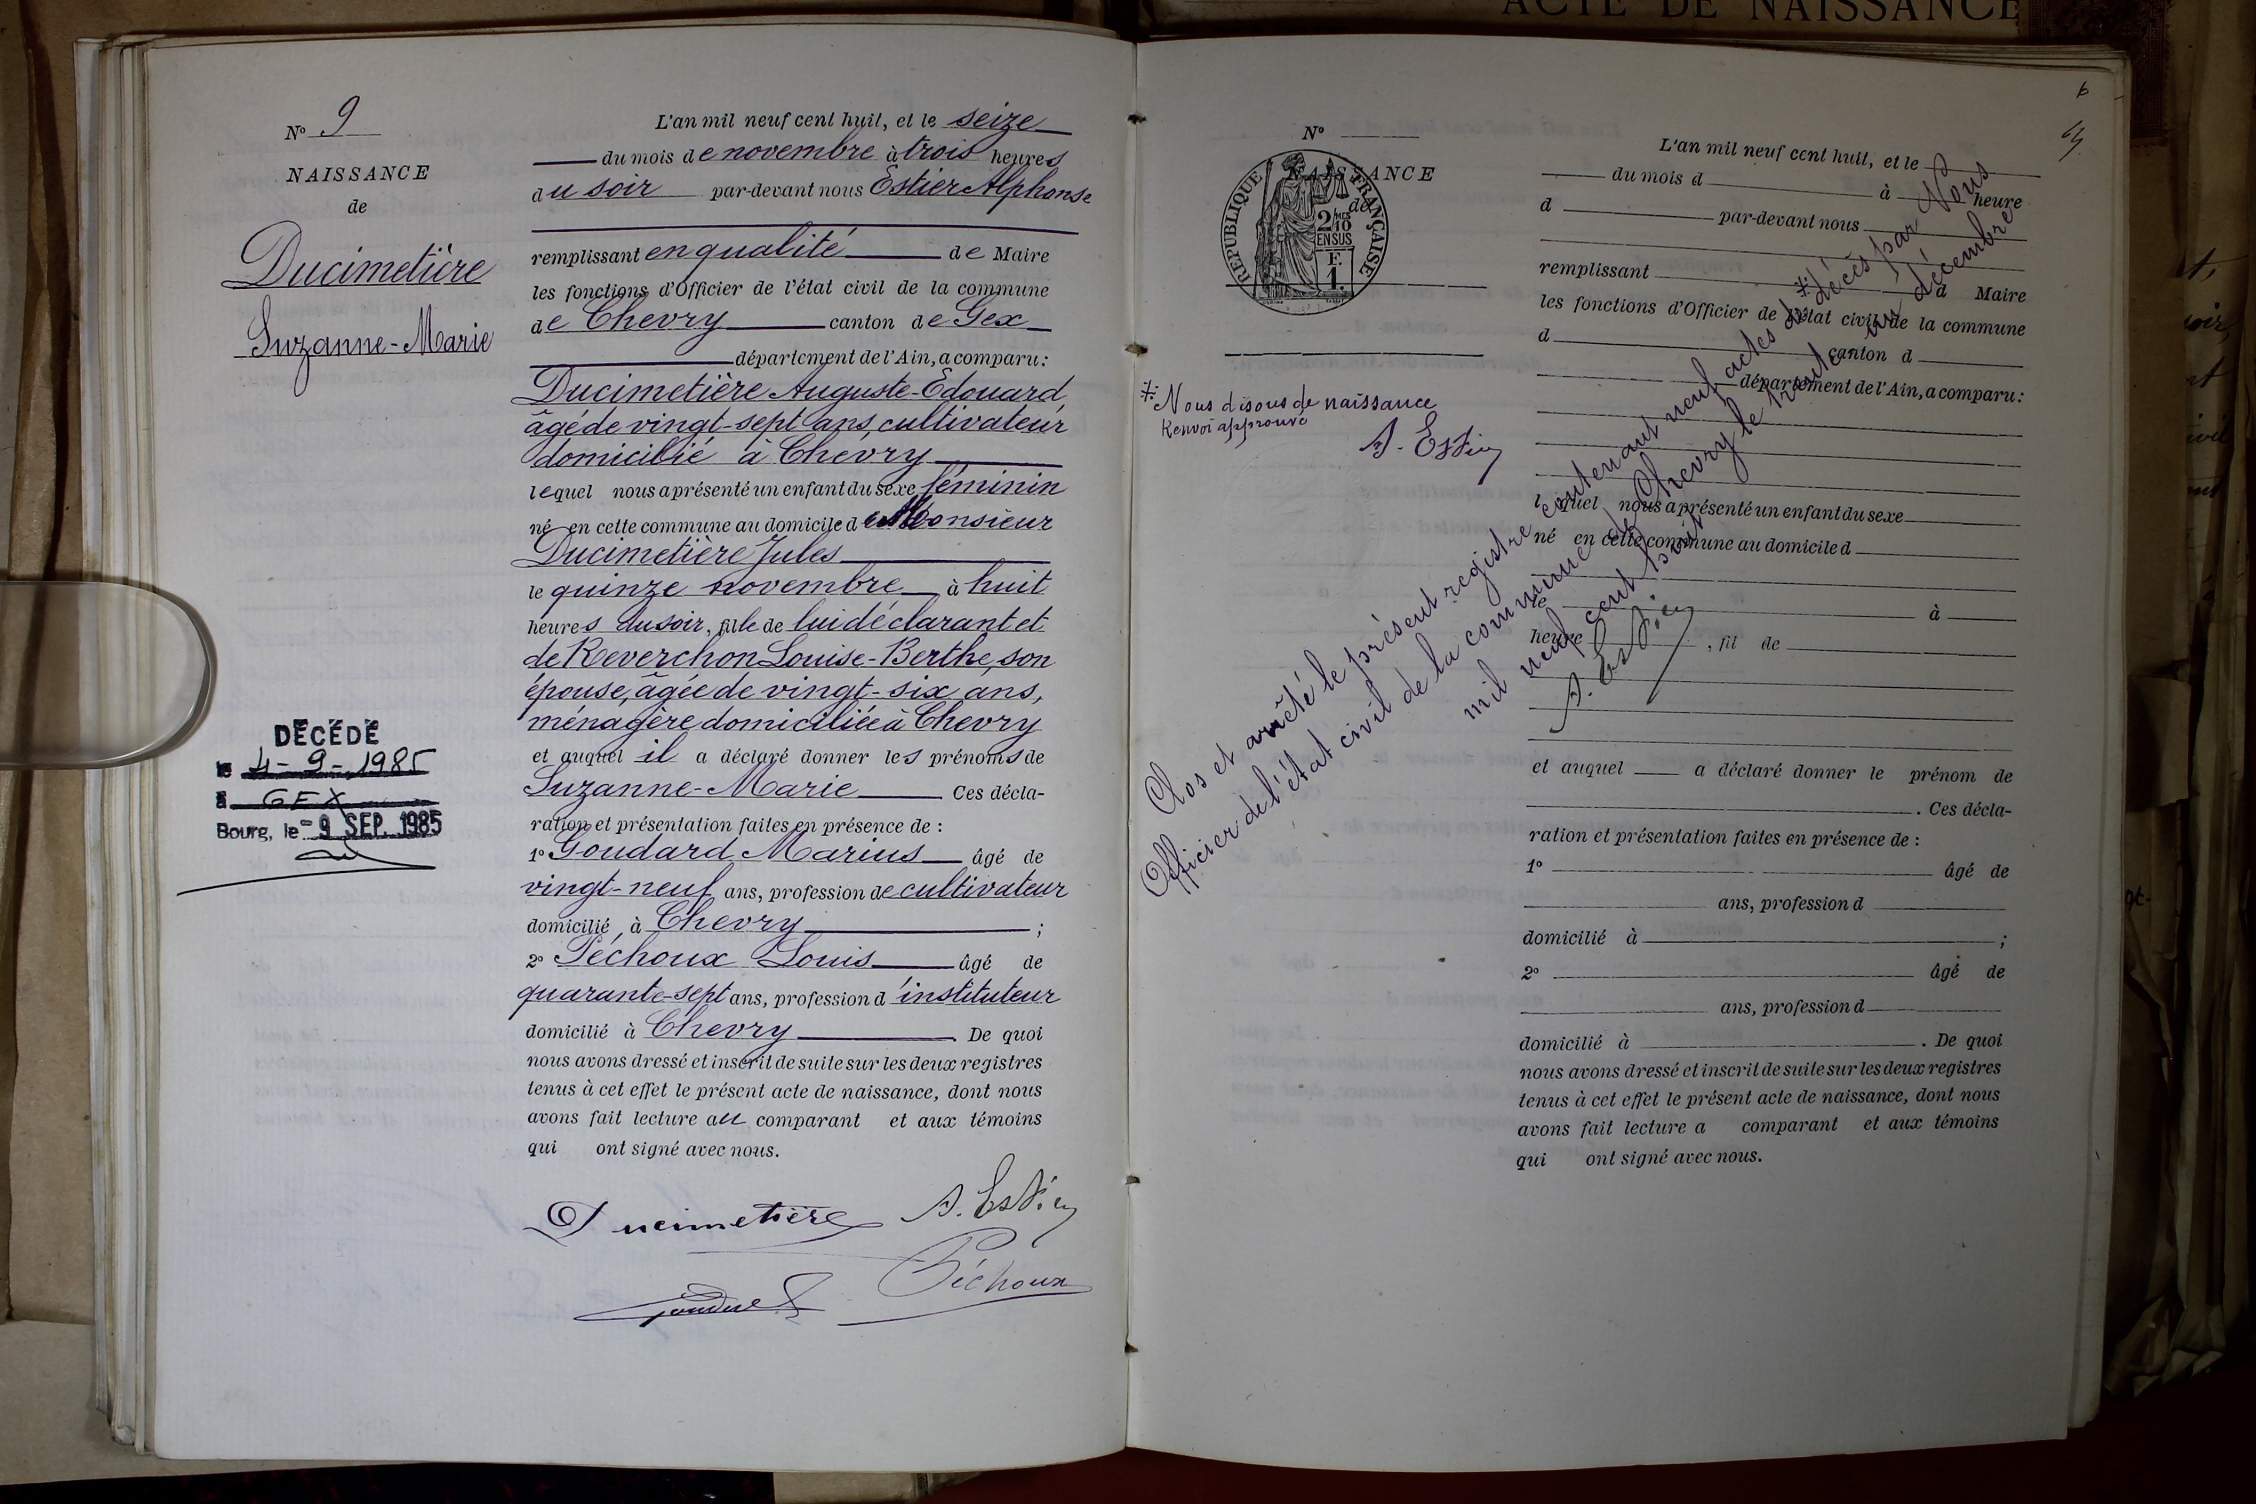 ACTE DE NAISSANCE
N° 9
NAISSANCE
de
Ducimetière
Suzanne-Marie
DÉCÉDÉ
le 4-9-1985
à GEX
Bourg, le -9 SEP. 1985
L'an mil neuf cent huit, et le seize
du mois de novembre à trois heures
du soir par-devant nous Estier Alphonse
remplissant en qualité de Maire
les fonctions d'Officier de l'état civil de la commune
de Chevry canton de Gex
département de l'Ain, a comparu:
Ducimetière Auguste-Edouard
âgé de vingt-sept ans, cultivateur
domicilié à Chevry
lequel nous a présenté un enfant du sexe féminin
né en cette commune au domicile de Monsieur
Ducimetière Jules
le quinze novembre à huit
heures du soir, fille de lui déclarant et
de Reverchon Louise-Berthe, son
épouse, âgée de vingt-six ans,
ménagère domiciliée à Chevry
et auquel il a déclaré donner les prénoms de
Suzanne-Marie Ces décla-
ration et présentation faites en présence de :
1° Goudard Marius âgé de
vingt-neuf ans, profession de cultivateur
domicilié à Chevry ;
2° Péchoux Louis âgé de
quarante-sept ans, profession d'instituteur
domicilié à Chevry. De quoi
nous avons dressé et inscrit de suite sur les deux registres
tenus à cet effet le présent acte de naissance, dont nous
avons fait lecture au comparant et aux témoins
qui ont signé avec nous.
Ducimetière A. Estier
Péchoux
6
N°
NAISSANCE
de
RÉPUBLIQUE FRANÇAISE
2/10 MES
EN SUS
F.
1.
⁜ Nous disons de naissance
Renvoi approuvé
A. Estier
Clos et arrêté le présent registre contenant neuf actes de ⁜ décès par Nous
Officier de l'état civil de la commune de Chevry le trente-un décembre
mil neuf cent huit
A. Estier
L'an mil neuf cent huit, et le
du mois d à heure
d par-devant nous
remplissant d Maire
les fonctions d'Officier de l'état civil de la commune
d canton d
département de l'Ain, a comparu:
lequel nous a présenté un enfant du sexe
né en cette commune au domicile d
le à
heure , fil de
et auquel a déclaré donner le prénom de
. Ces décla-
ration et présentation faites en présence de :
1° âgé de
ans, profession d
domicilié à ;
2° âgé de
ans, profession d
domicilié à . De quoi
nous avons dressé et inscrit de suite sur les deux registres
tenus à cet effet le présent acte de naissance, dont nous
avons fait lecture a comparant et aux témoins
qui ont signé avec nous.